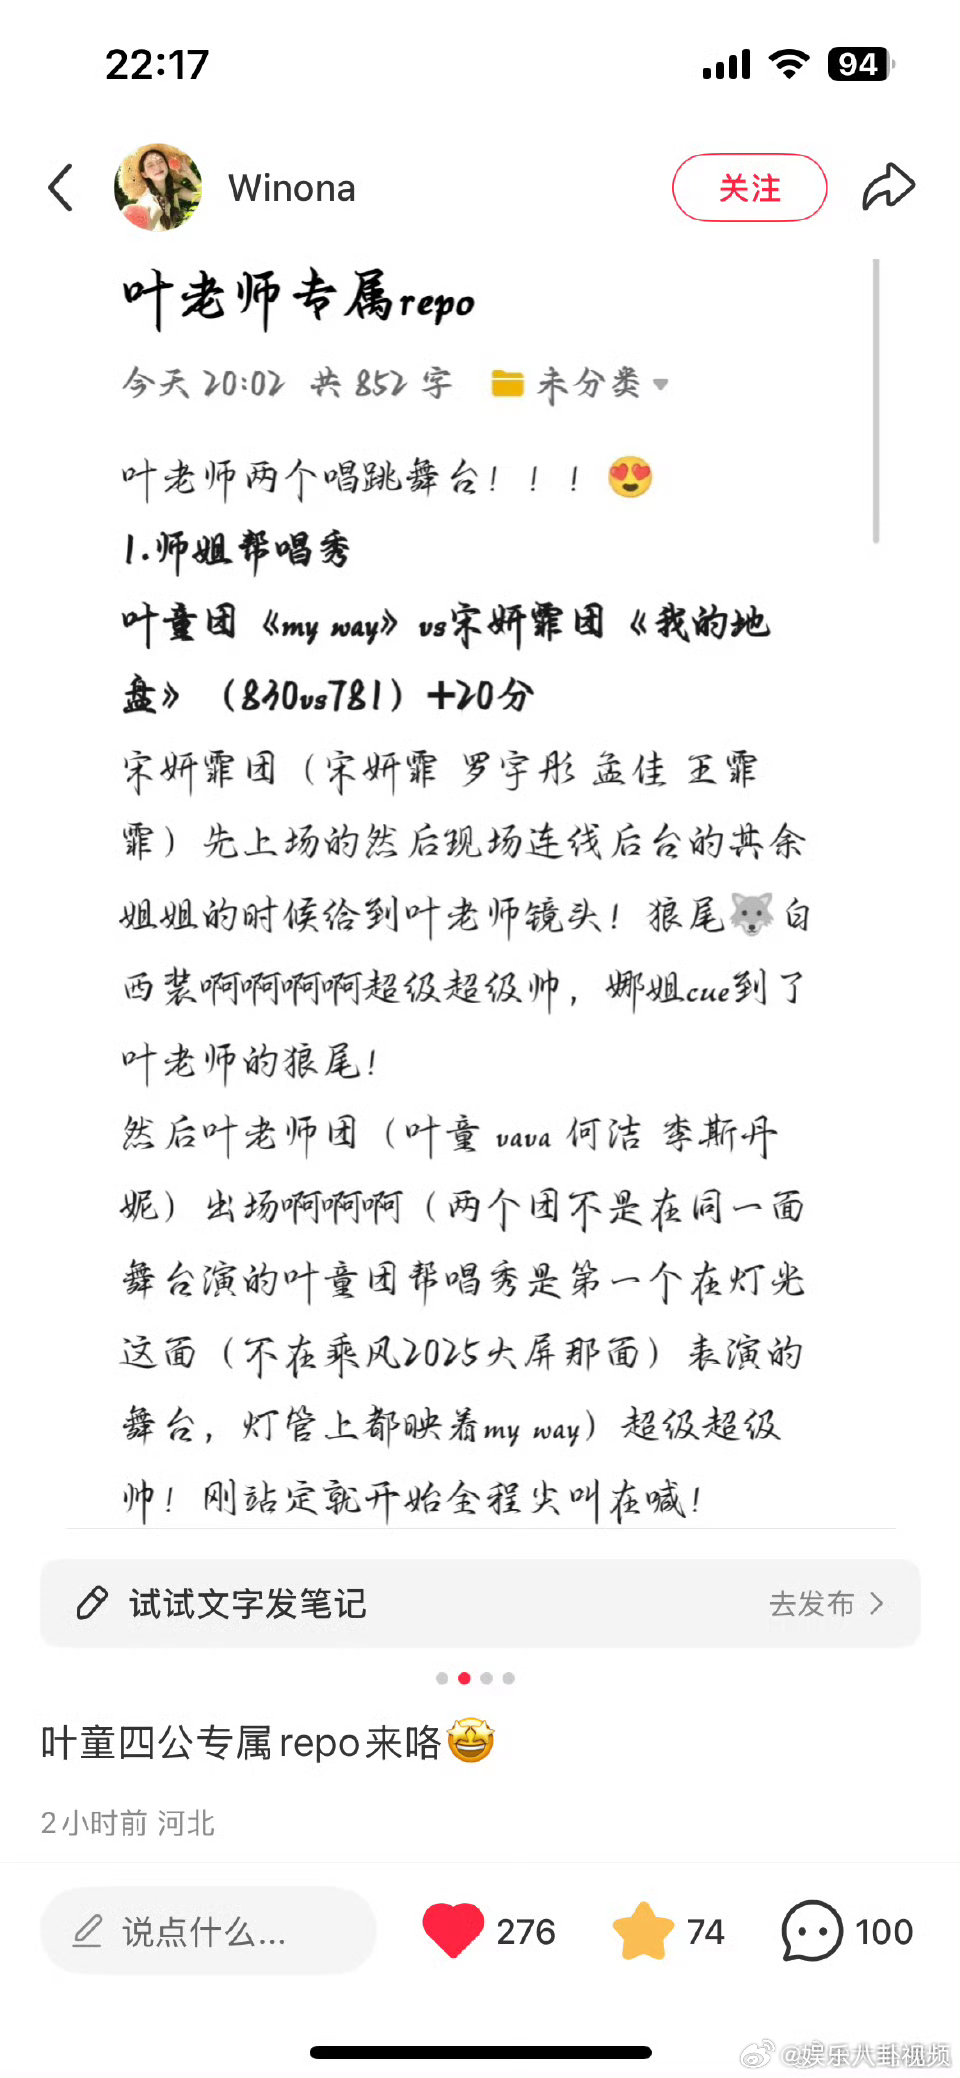 22:17
94
Winona
关注
叶老师专属repo
今天 20:02 共 852 字 未分类
叶老师两个唱跳舞台！！！😍
1.师姐帮唱秀
叶童团《my way》vs宋妍霏团《我的地
盘》（830vs781）+20分
宋妍霏团（宋妍霏 罗宇彤 孟佳 王霏
霏）先上场的然后现场连线后台的其余
姐姐的时候给到叶老师镜头！狼尾🐺白
西装啊啊啊啊超级超级帅，娜姐cue到了
叶老师的狼尾！
然后叶老师团（叶童 vava 何洁 李斯丹
妮）出场啊啊啊（两个团不是在同一面
舞台演的叶童团帮唱秀是第一个在灯光
这面（不在乘风2025大屏那面）表演的
舞台，灯管上都映着my way）超级超级
帅！刚站定就开始全程尖叫在喊！
试试文字发笔记
去发布
叶童四公专属repo来咯🤩
2小时前 河北
说点什么...
276
74
100
@娱乐八卦视频